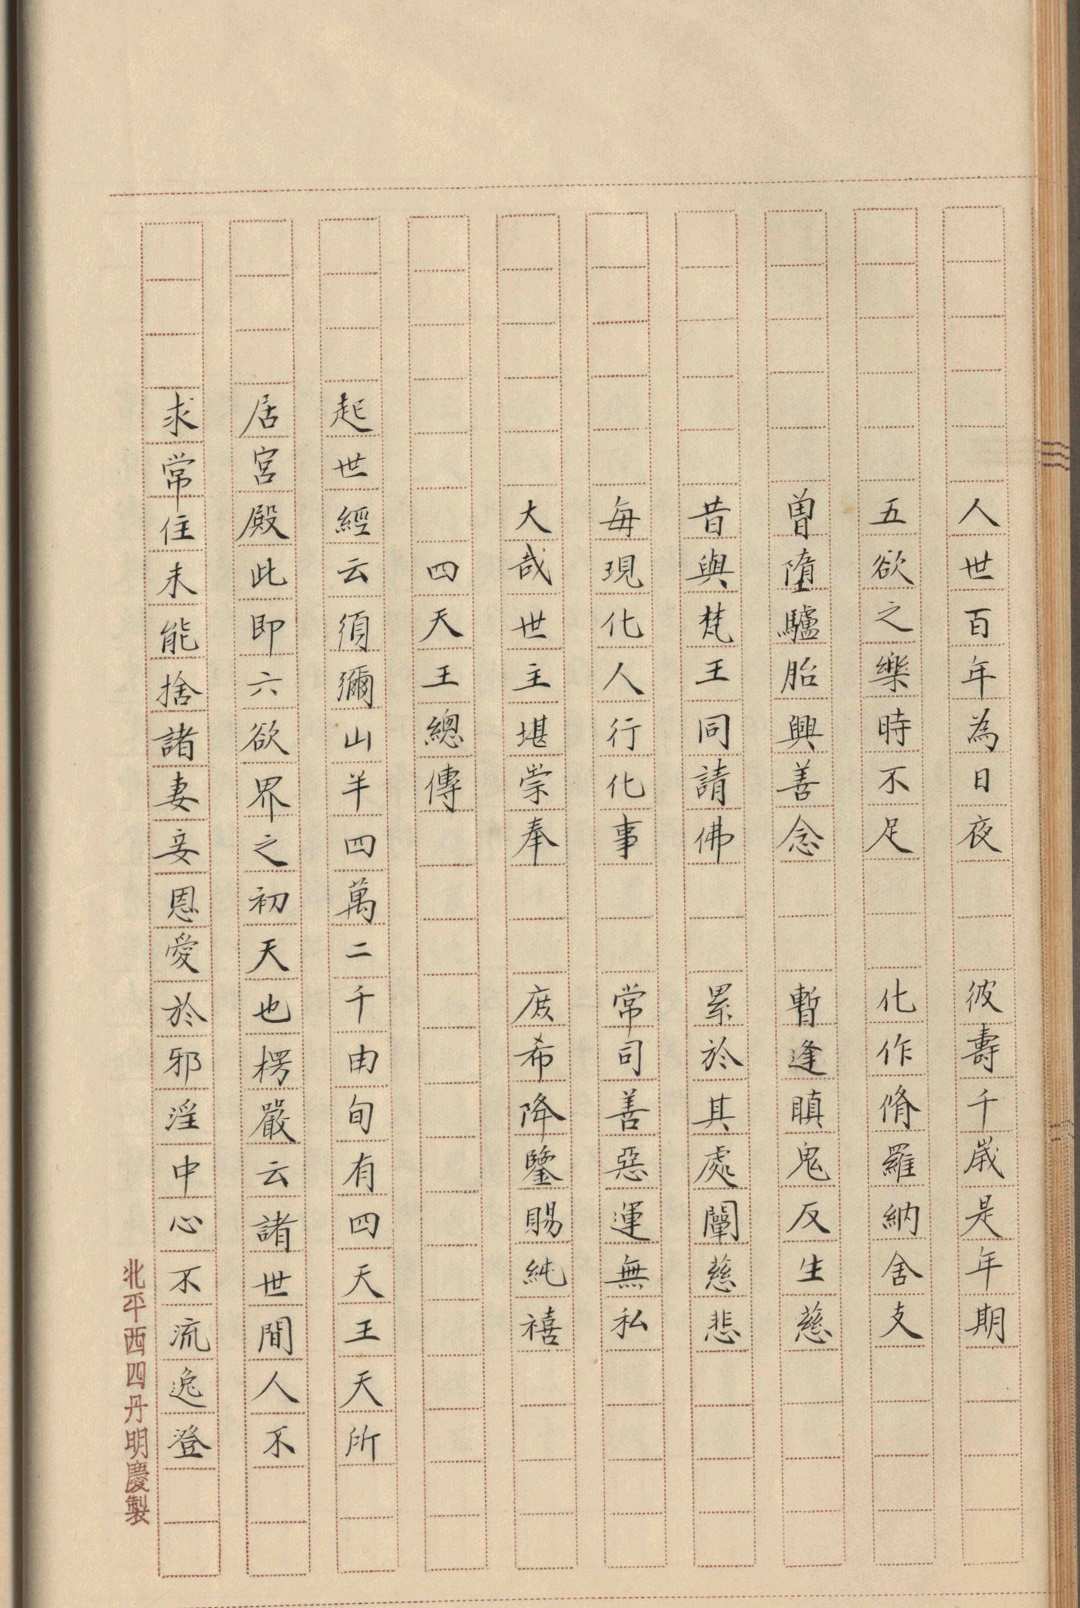 人世百年為日夜　彼壽千歲是年期
五欲之樂時不足　化作脩羅納舍支
曽墮驢胎興善念　暫逢瞋鬼反生慈
昔與梵王同請佛　累於其處闡慈悲
每現化人行化事　常司善惡運無私
大哉世主堪崇奉　庻希降鑒賜純禧
四天王總傳
起世經云須彌山半四萬二千由旬有四天王天所
居宮殿此即六欲界之初天也楞嚴云諸世間人不
求常住未能捨諸妻妾恩愛於邪淫中心不流逸登
北平西四丹明慶製